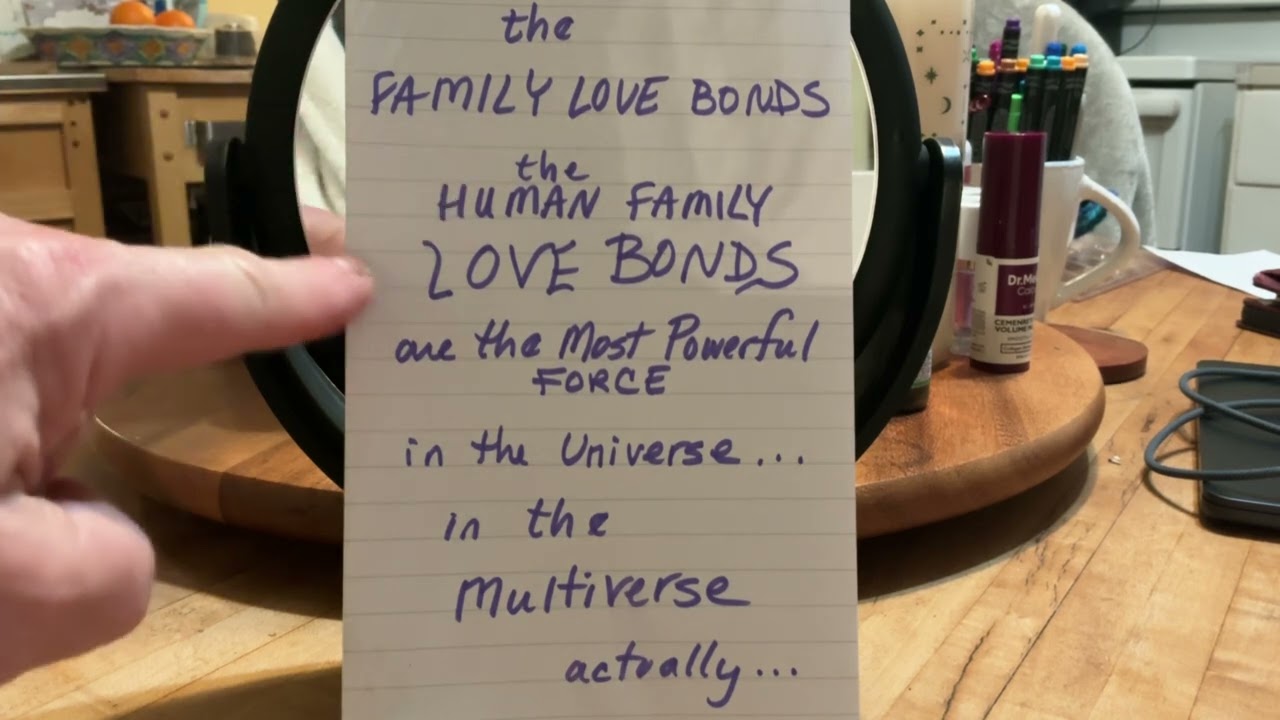 the
FAMILY LOVE BONDS
the
HUMAN FAMILY
LOVE BONDS
are the Most Powerful
FORCE
in the Universe...
in the
Multiverse
actually...
Dr.Me
VOLUME